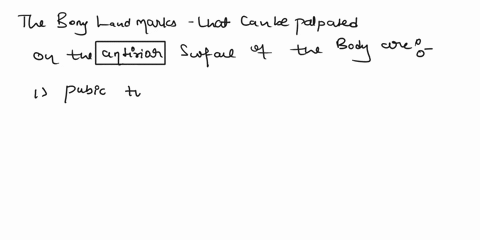 The Bony Landmarks that can be palpated
on the antiriar Surface of the Body are :-
1) pubic tu